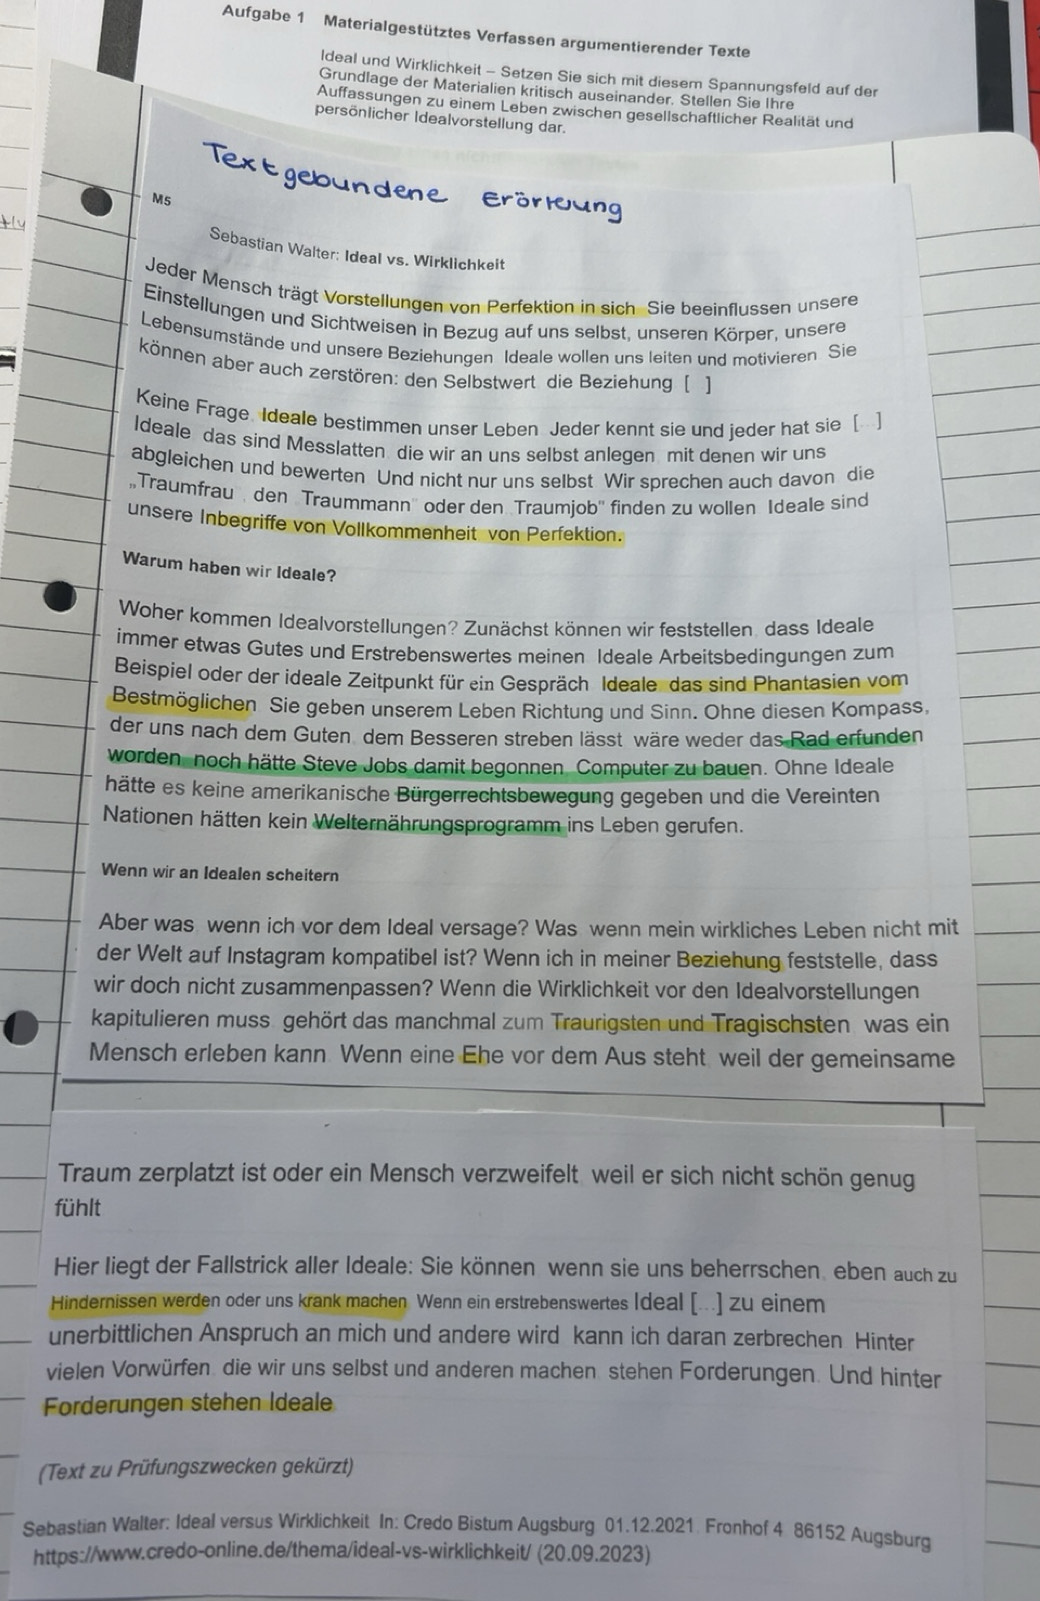 Aufgabe 1 Materialgestütztes Verfassen argumentierender Texte
Ideal und Wirklichkeit – Setzen Sie sich mit diesem Spannungsfeld auf der
Grundlage der Materialien kritisch auseinander. Stellen Sie Ihre
Auffassungen zu einem Leben zwischen gesellschaftlicher Realität und
persönlicher Idealvorstellung dar.
Textgebundene Erörterung
M5
Sebastian Walter: Ideal vs. Wirklichkeit
Jeder Mensch trägt Vorstellungen von Perfektion in sich Sie beeinflussen unsere
Einstellungen und Sichtweisen in Bezug auf uns selbst, unseren Körper, unsere
Lebensumstände und unsere Beziehungen Ideale wollen uns leiten und motivieren Sie
können aber auch zerstören: den Selbstwert die Beziehung [ ]
Keine Frage Ideale bestimmen unser Leben Jeder kennt sie und jeder hat sie [...]
Ideale das sind Messlatten die wir an uns selbst anlegen mit denen wir uns
abgleichen und bewerten Und nicht nur uns selbst Wir sprechen auch davon die
„Traumfrau den Traummann" oder den Traumjob" finden zu wollen Ideale sind
unsere Inbegriffe von Vollkommenheit von Perfektion.
Warum haben wir Ideale?
Woher kommen Idealvorstellungen? Zunächst können wir feststellen dass Ideale
immer etwas Gutes und Erstrebenswertes meinen Ideale Arbeitsbedingungen zum
Beispiel oder der ideale Zeitpunkt für ein Gespräch Ideale das sind Phantasien vom
Bestmöglichen Sie geben unserem Leben Richtung und Sinn. Ohne diesen Kompass,
der uns nach dem Guten dem Besseren streben lässt wäre weder das Rad erfunden
worden noch hätte Steve Jobs damit begonnen Computer zu bauen. Ohne Ideale
hätte es keine amerikanische Bürgerrechtsbewegung gegeben und die Vereinten
Nationen hätten kein Welternährungsprogramm ins Leben gerufen.
Wenn wir an Idealen scheitern
Aber was wenn ich vor dem Ideal versage? Was wenn mein wirkliches Leben nicht mit
der Welt auf Instagram kompatibel ist? Wenn ich in meiner Beziehung feststelle, dass
wir doch nicht zusammenpassen? Wenn die Wirklichkeit vor den Idealvorstellungen
kapitulieren muss gehört das manchmal zum Traurigsten und Tragischsten was ein
Mensch erleben kann Wenn eine Ehe vor dem Aus steht weil der gemeinsame
Traum zerplatzt ist oder ein Mensch verzweifelt weil er sich nicht schön genug
fühlt
Hier liegt der Fallstrick aller Ideale: Sie können wenn sie uns beherrschen, eben auch zu
Hindernissen werden oder uns krank machen Wenn ein erstrebenswertes Ideal [...] zu einem
unerbittlichen Anspruch an mich und andere wird kann ich daran zerbrechen Hinter
vielen Vorwürfen die wir uns selbst und anderen machen stehen Forderungen. Und hinter
Forderungen stehen Ideale
(Text zu Prüfungszwecken gekürzt)
Sebastian Walter: Ideal versus Wirklichkeit In: Credo Bistum Augsburg 01.12.2021 Fronhof 4 86152 Augsburg
https://www.credo-online.de/thema/ideal-vs-wirklichkeit/ (20.09.2023)